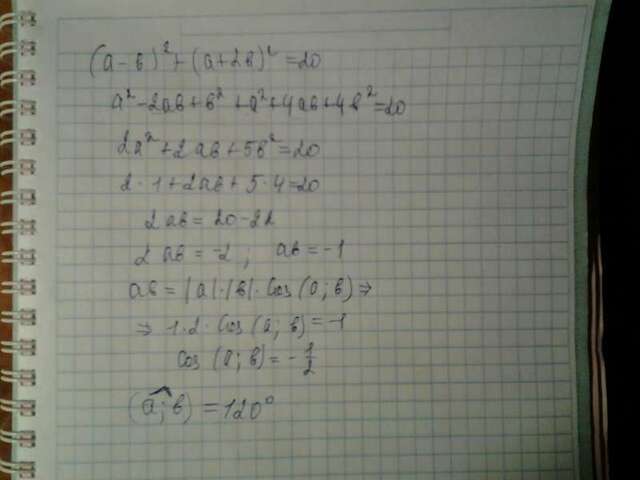 (a-b)² + (a+2b)² = 20
a² - 2ab + b² + a² + 4ab + 4b² = 20
2a² + 2ab + 5b² = 20
2·1 + 2ab + 5·4 = 20
2ab = 20-22
2ab = -2 ; ab = -1
ab = |a|·|b|·cos(a;b) ⇒
⇒ 1·2·cos(a;b) = -1
cos(a;b) = -1/2
(a;b) = 120°